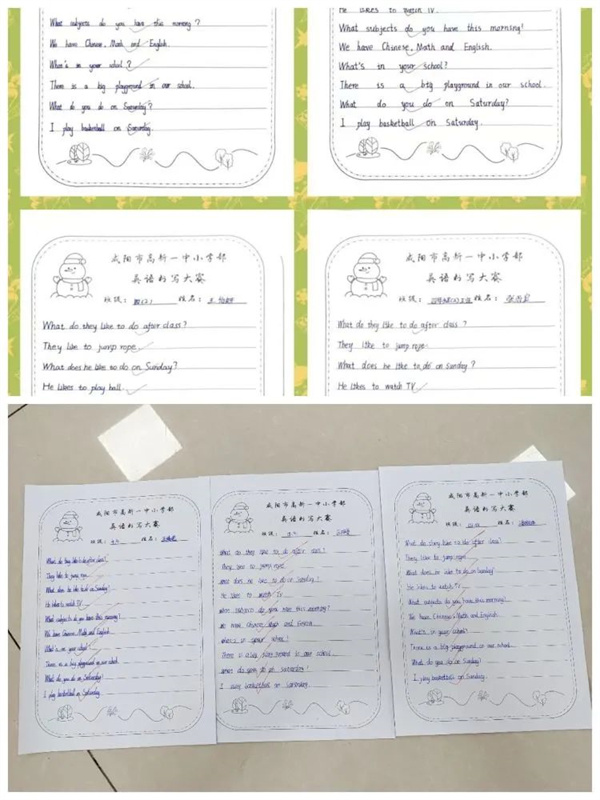 What subjects do you have this morning?
We have Chinese, Math and English.
What's in your school?
There is a big playground in our school.
What do you do on Saturday?
I play basketball on Saturday.
He likes to watch TV.
What subjects do you have this morning?
We have Chinese, Math and English.
What's in your school?
There is a big playground in our school.
What do you do on Saturday?
I play basketball on Saturday.
咸阳市高新一中小学部
英语书写大赛
班级： 姓名：
What do they like to do after class?
They like to jump rope.
What does he like to do on Sunday?
He likes to play ball.
咸阳市高新一中小学部
英语书写大赛
班级： 姓名：
What do they like to do after class?
They like to jump rope.
What does he like to do on Sunday?
He likes to watch TV.
咸阳市高新一中小学部
英语书写大赛
班级： 姓名：
What do they like to do after class?
They like to jump rope.
What does he like to do on Sunday?
He likes to watch TV.
What subjects do you have this morning?
We have Chinese, Math and English.
What's in your school?
There is a big playground in our school.
What do you do on Saturday?
I play basketball on Saturday.
咸阳市高新一中小学部
英语书写大赛
班级： 姓名：
What do they like to do after class?
They like to jump rope.
What does he like to do on Sunday?
He likes to watch TV.
What subjects do you have this morning?
We have Chinese, Math and English.
What's in your school?
There is a big playground in our school.
What do you do on Saturday?
I play basketball on Saturday.
咸阳市高新一中小学部
英语书写大赛
班级： 姓名：
What do they like to do after class?
They like to jump rope.
What does he like to do on Sunday?
He likes to watch TV.
What subjects do you have this morning?
We have Chinese, Math and English.
What's in your school?
There is a big playground in our school.
What do you do on Sunday?
I play basketball on Sunday.